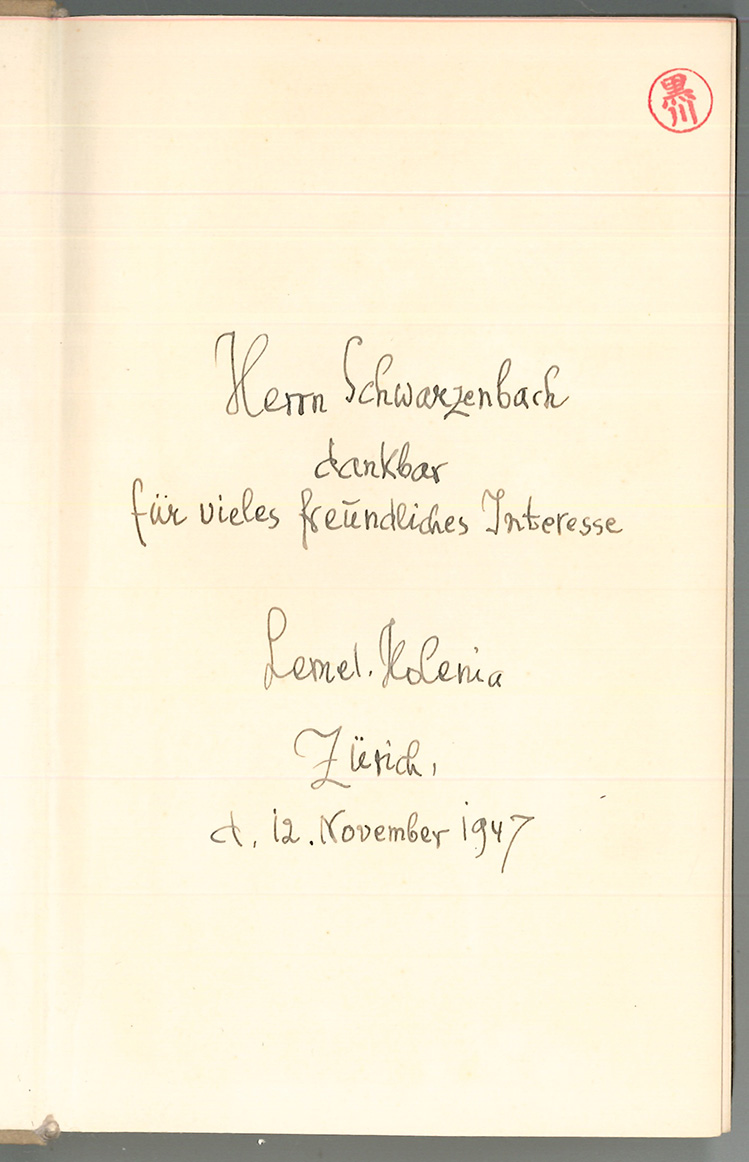 黒川
Herrn Schwarzenbach
dankbar
für vieles freundliches Interesse
Lernet. Holenia
Zürich,
d. 12. November 1947